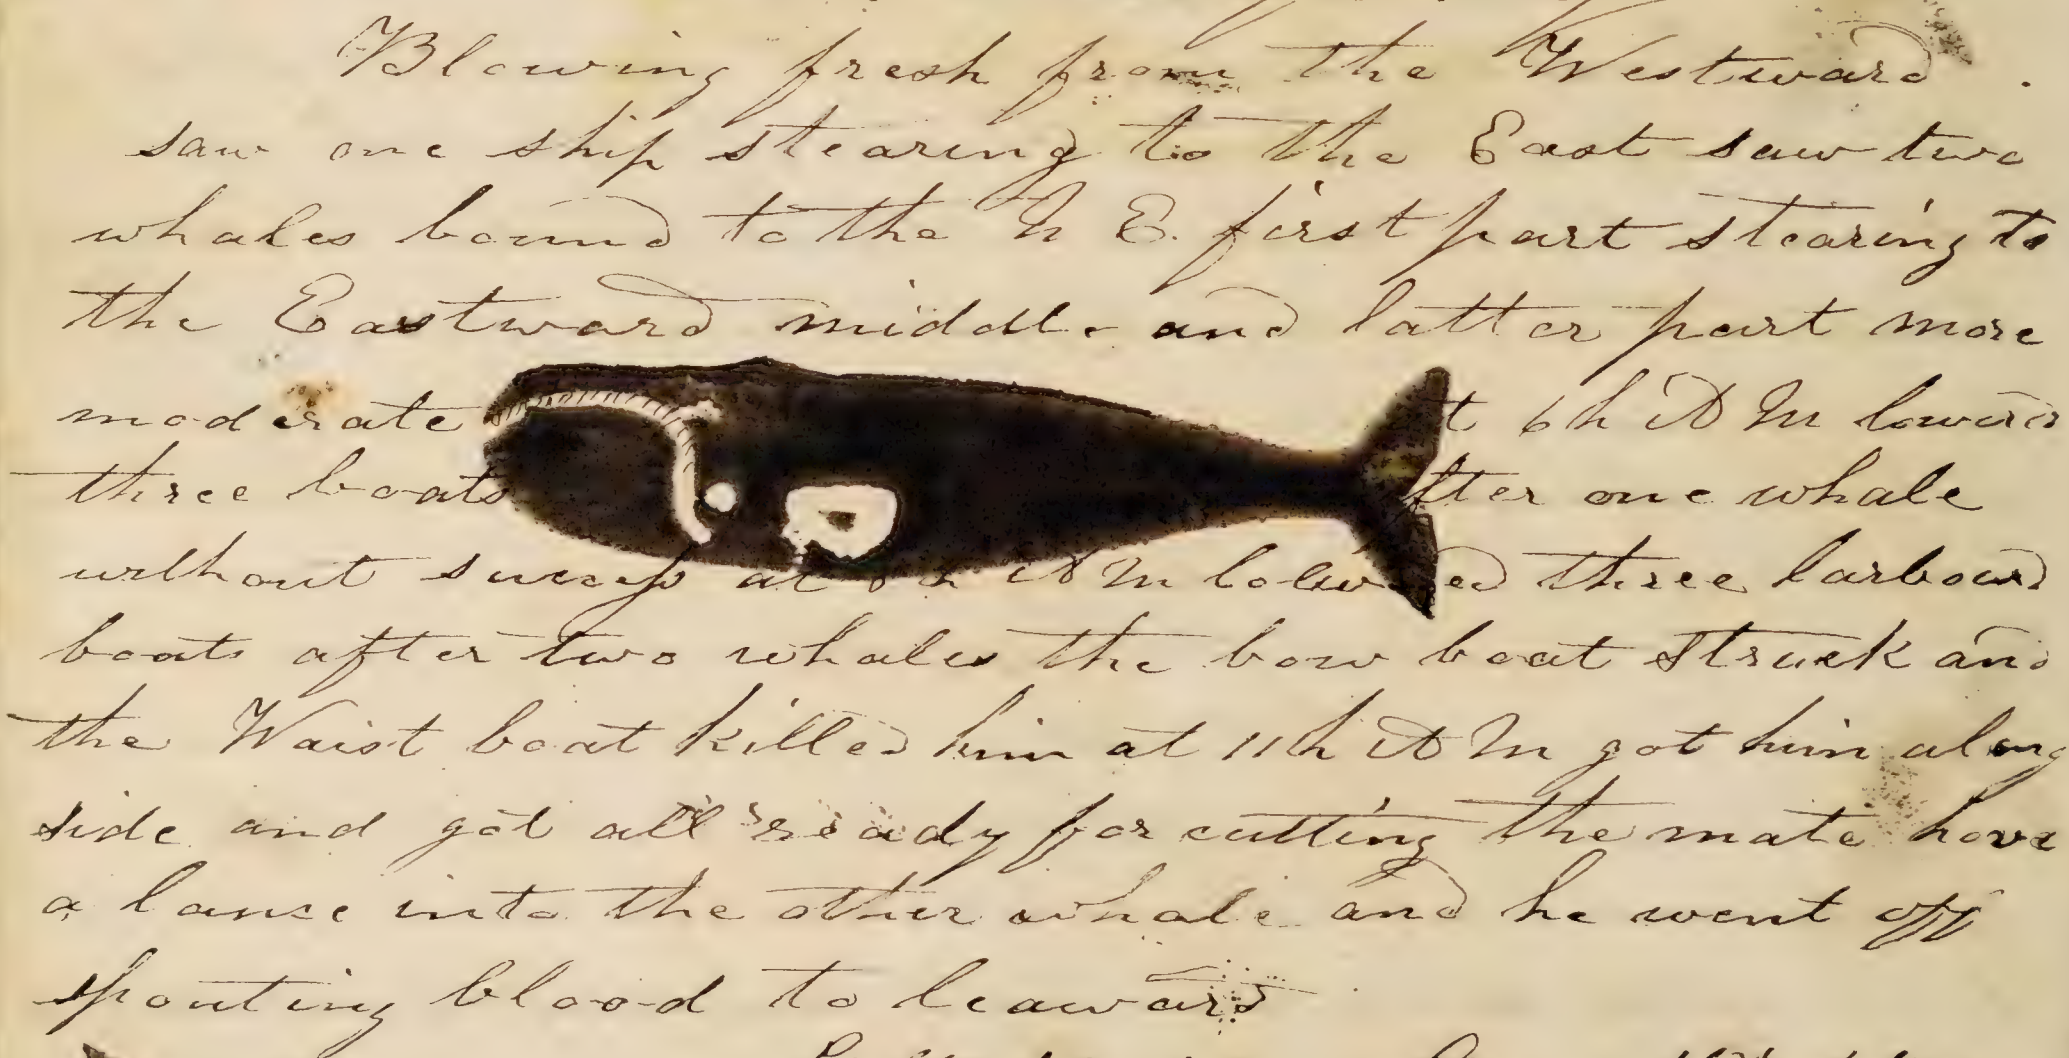 Blowing fresh from the Westward .
saw one ship stearing to the East saw two
whales bound to the N E. first part stearing to
the Eastward middle and latter part more
moderate t 6 h A M lowered
three boats fter one whale
without at h A M lowered three larboard
boats after two whales the bow boat struck and
the Waist boat killed him at 11 h A M got him along
side and got all ready for cutting the mate hove
a lance into the other whale and he went off
spouting blood to leaward